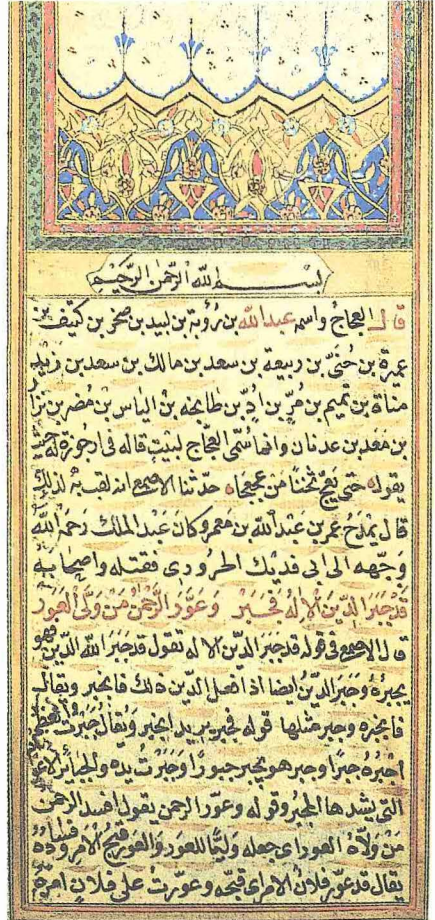 بسم الله الرحمن الرحيم
قال العجاج واسمه عبدالله بن رُؤبة بن لبيد بن صخر بن كثيف بن
عميرة بن حُنَيّ بن ربيعة بن سعد بن مالك بن سعد بن زيد
مناة بن تميم بن مُرّ بن اُدّ بن طابخه بن الياس بن مُضر بن نزا
بن معد بن عدنان وانما سُمّى العجّاج لبيتٍ قاله فى ارجوزة له
يقوله حتى يعج ثخنًا من عجعجا حدّثنا الاصمعى انه لقب به لذلك
قال يمدح عمر بن عبد الله بن معمر وكان عبد الملك رحمه الله
وجّهه الى ابى فديك الحرورى فقتله واصحابه
قد جبر الدّينَ الاِلهُ فجبر وعوّر الرّحمنُ من ولّى العور
قال الاصمعى فى قوله قد جبر الدّين الاله تقول قد جبر الله الدّين فهو
يجبره وجبر الدّينُ ايضا اذا فعل الدّين ذلك فانجبر ويقال
فانجبره وجبر مثلها قوله فجبر يريد انجبر ويقال جبرتُ العظم
اجبُره جبرًا وجبر هو يجبر جبورًا وجَبَرتُ يده والجبائر
التى يشد ها المجبر وقوله وعوّر الرحمن يقول افسد الرحمن
من ولّاه العور اى جعله وليًّا للعور والعور قبح الامر وفساده
يقال قد عوّر فلان الامر اى قبّحه وعوّرتُ على فلان امره